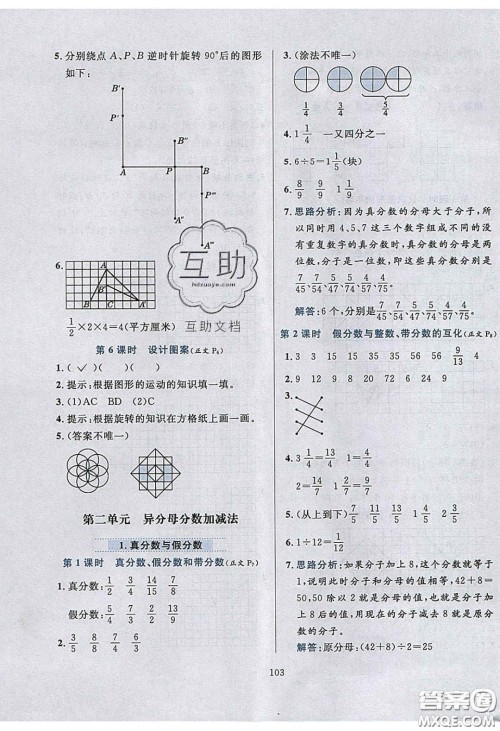 5. 分别绕点 A、P、B 逆时针旋转 90°后的图形
如下：
B′
P′
B″
A P B
P‴
A″
A‴
6.
A
B A
1/2×2×4=4(平方厘米)
第 6 课时 设计图案(正文 P₆)
1. ( ✓ ) ( ) ( )
2. 提示：根据图形的运动的知识填一填。
3. (1)AC BD (2)AC
4. 提示：根据旋转的知识在方格纸上画一画。
5. (答案不唯一)
第二单元 异分母分数加减法
1. 真分数与假分数
第 1 课时 真分数、假分数和带分数(正文 P₇)
1. 真分数： 1/2 3/4 7/15 7/9
2. 3/5 5/8 4/9 7/16
3. (涂法不唯一)
1/4 3/4 5/4
4. 1 1/4 一又四分之一
5. 6÷5=1 1/5(块)
6. 8/9 9/9 1 1/9
7. 思路分析：因为真分数的分母大于分子，所
以同时用 4、5、7 这三个数字组成不同的没
有重复数字的真分数时，真分数的分母是
两位数，分子是一位数，即这些真分数分别是
7/45、7/54、5/74、5/47、4/57、4/75。
解答：6 个，分别是 7/45、7/54、5/74、5/47、4/57、4/75。
第 2 课时 假分数与整数、带分数的互化(正文 P₈)
1. 3 3 15 15 7 6 9/13 4
2.
3. 3 1/4=13/4 1 1/3=4/3
1=12/12 2=14/7
5. (从上到下) 7/5 11/5 13/5 16/5
6. 29 19 40 3 2 1
7. 思路分析：如果分子加上 8，这个假分数就等
于 1，说明此时分子和分母的值相等，42+8=
50，50 除以 2 就是分母的值，也就是分子加
上 8 后的值，用现在的分子减去 8 就是原分
数的分子。
解答：原分母：(42+8)÷2=25
103
互助
hdzuoye.com
互助文档
答案圈
MXQE.COM